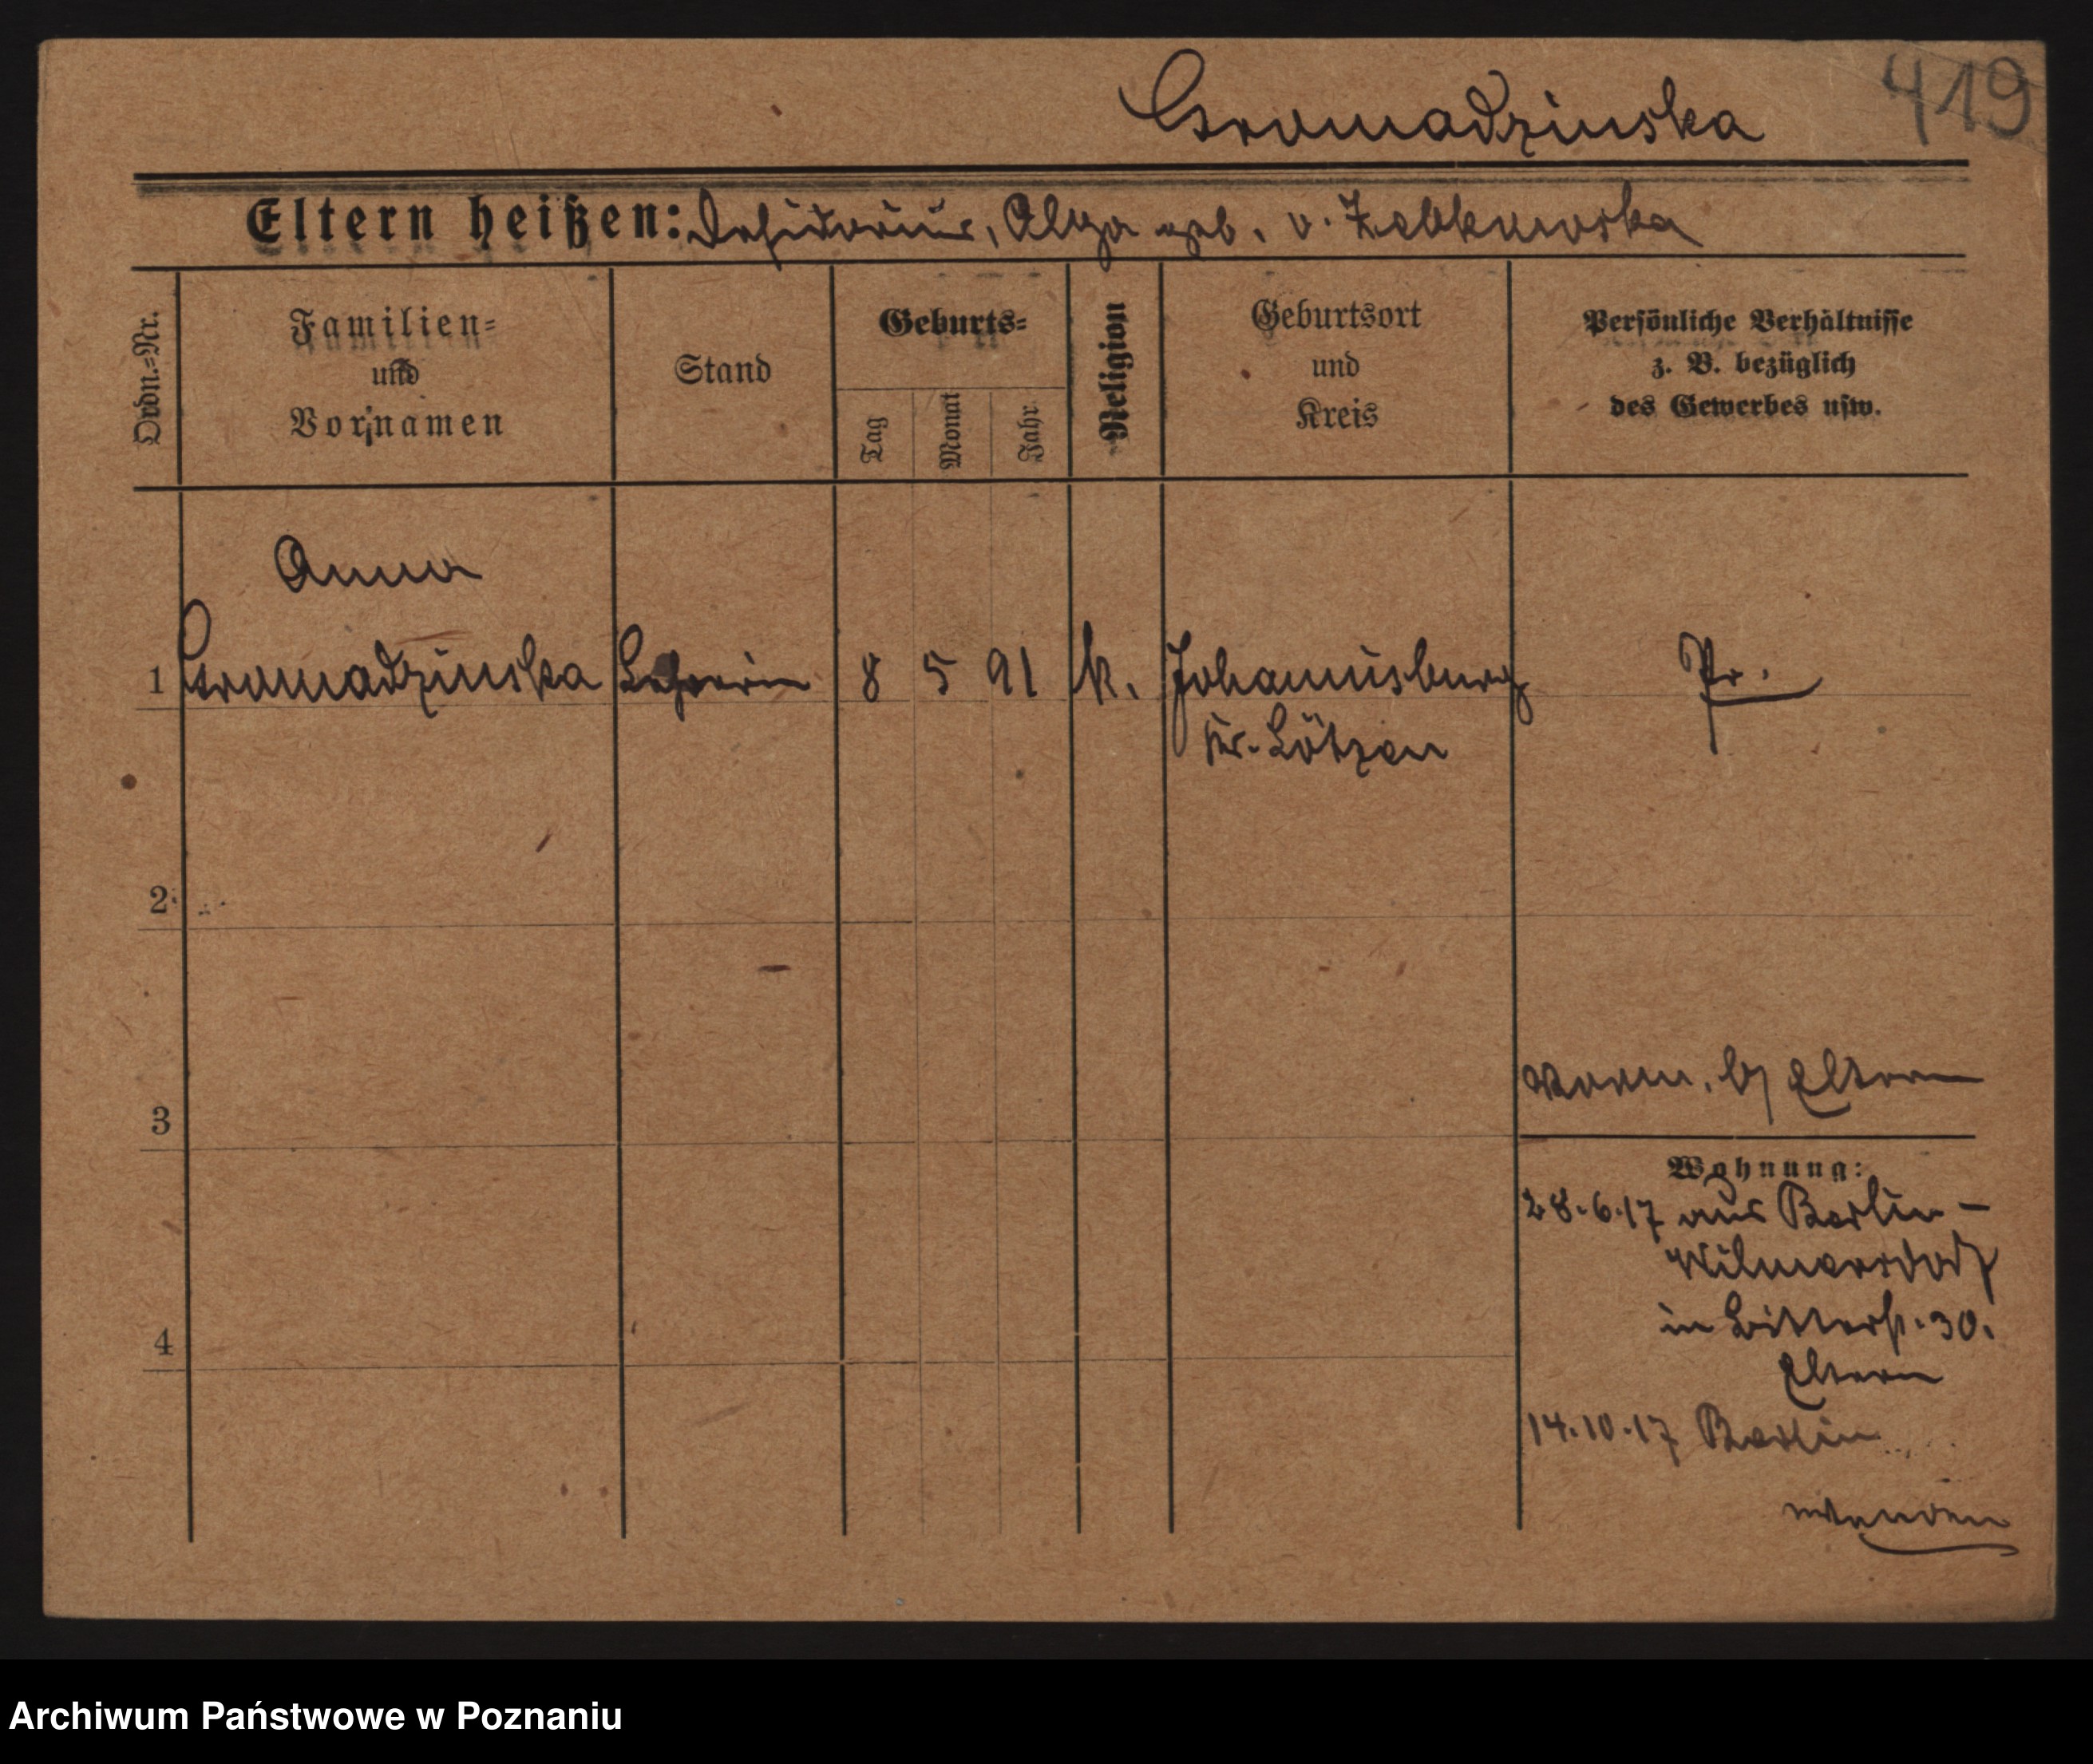 419
Gromadzinska
Eltern heißen: Desiderius, Olga geb. v.
Ordn.=Nr.
Familien=
und
Vornamen
Stand
Geburts=
Tag
Monat
Jahr
Religion
Geburtsort
und
Kreis
Persönliche Verhältnisse
z. B. bezüglich
des Gewerbes usw.
Anna
1 Gromadzinska Lehrerin 8 5 91 k. Johannisburg Pr.
Kr. Lötzen
2
3
verm. b/ Eltern
Wohnung:
28.6.17 aus Berlin-
Wilmersdorf
in Bitterstr. 30.
Eltern
4
14.10.17 Berlin
Archiwum Państwowe w Poznaniu